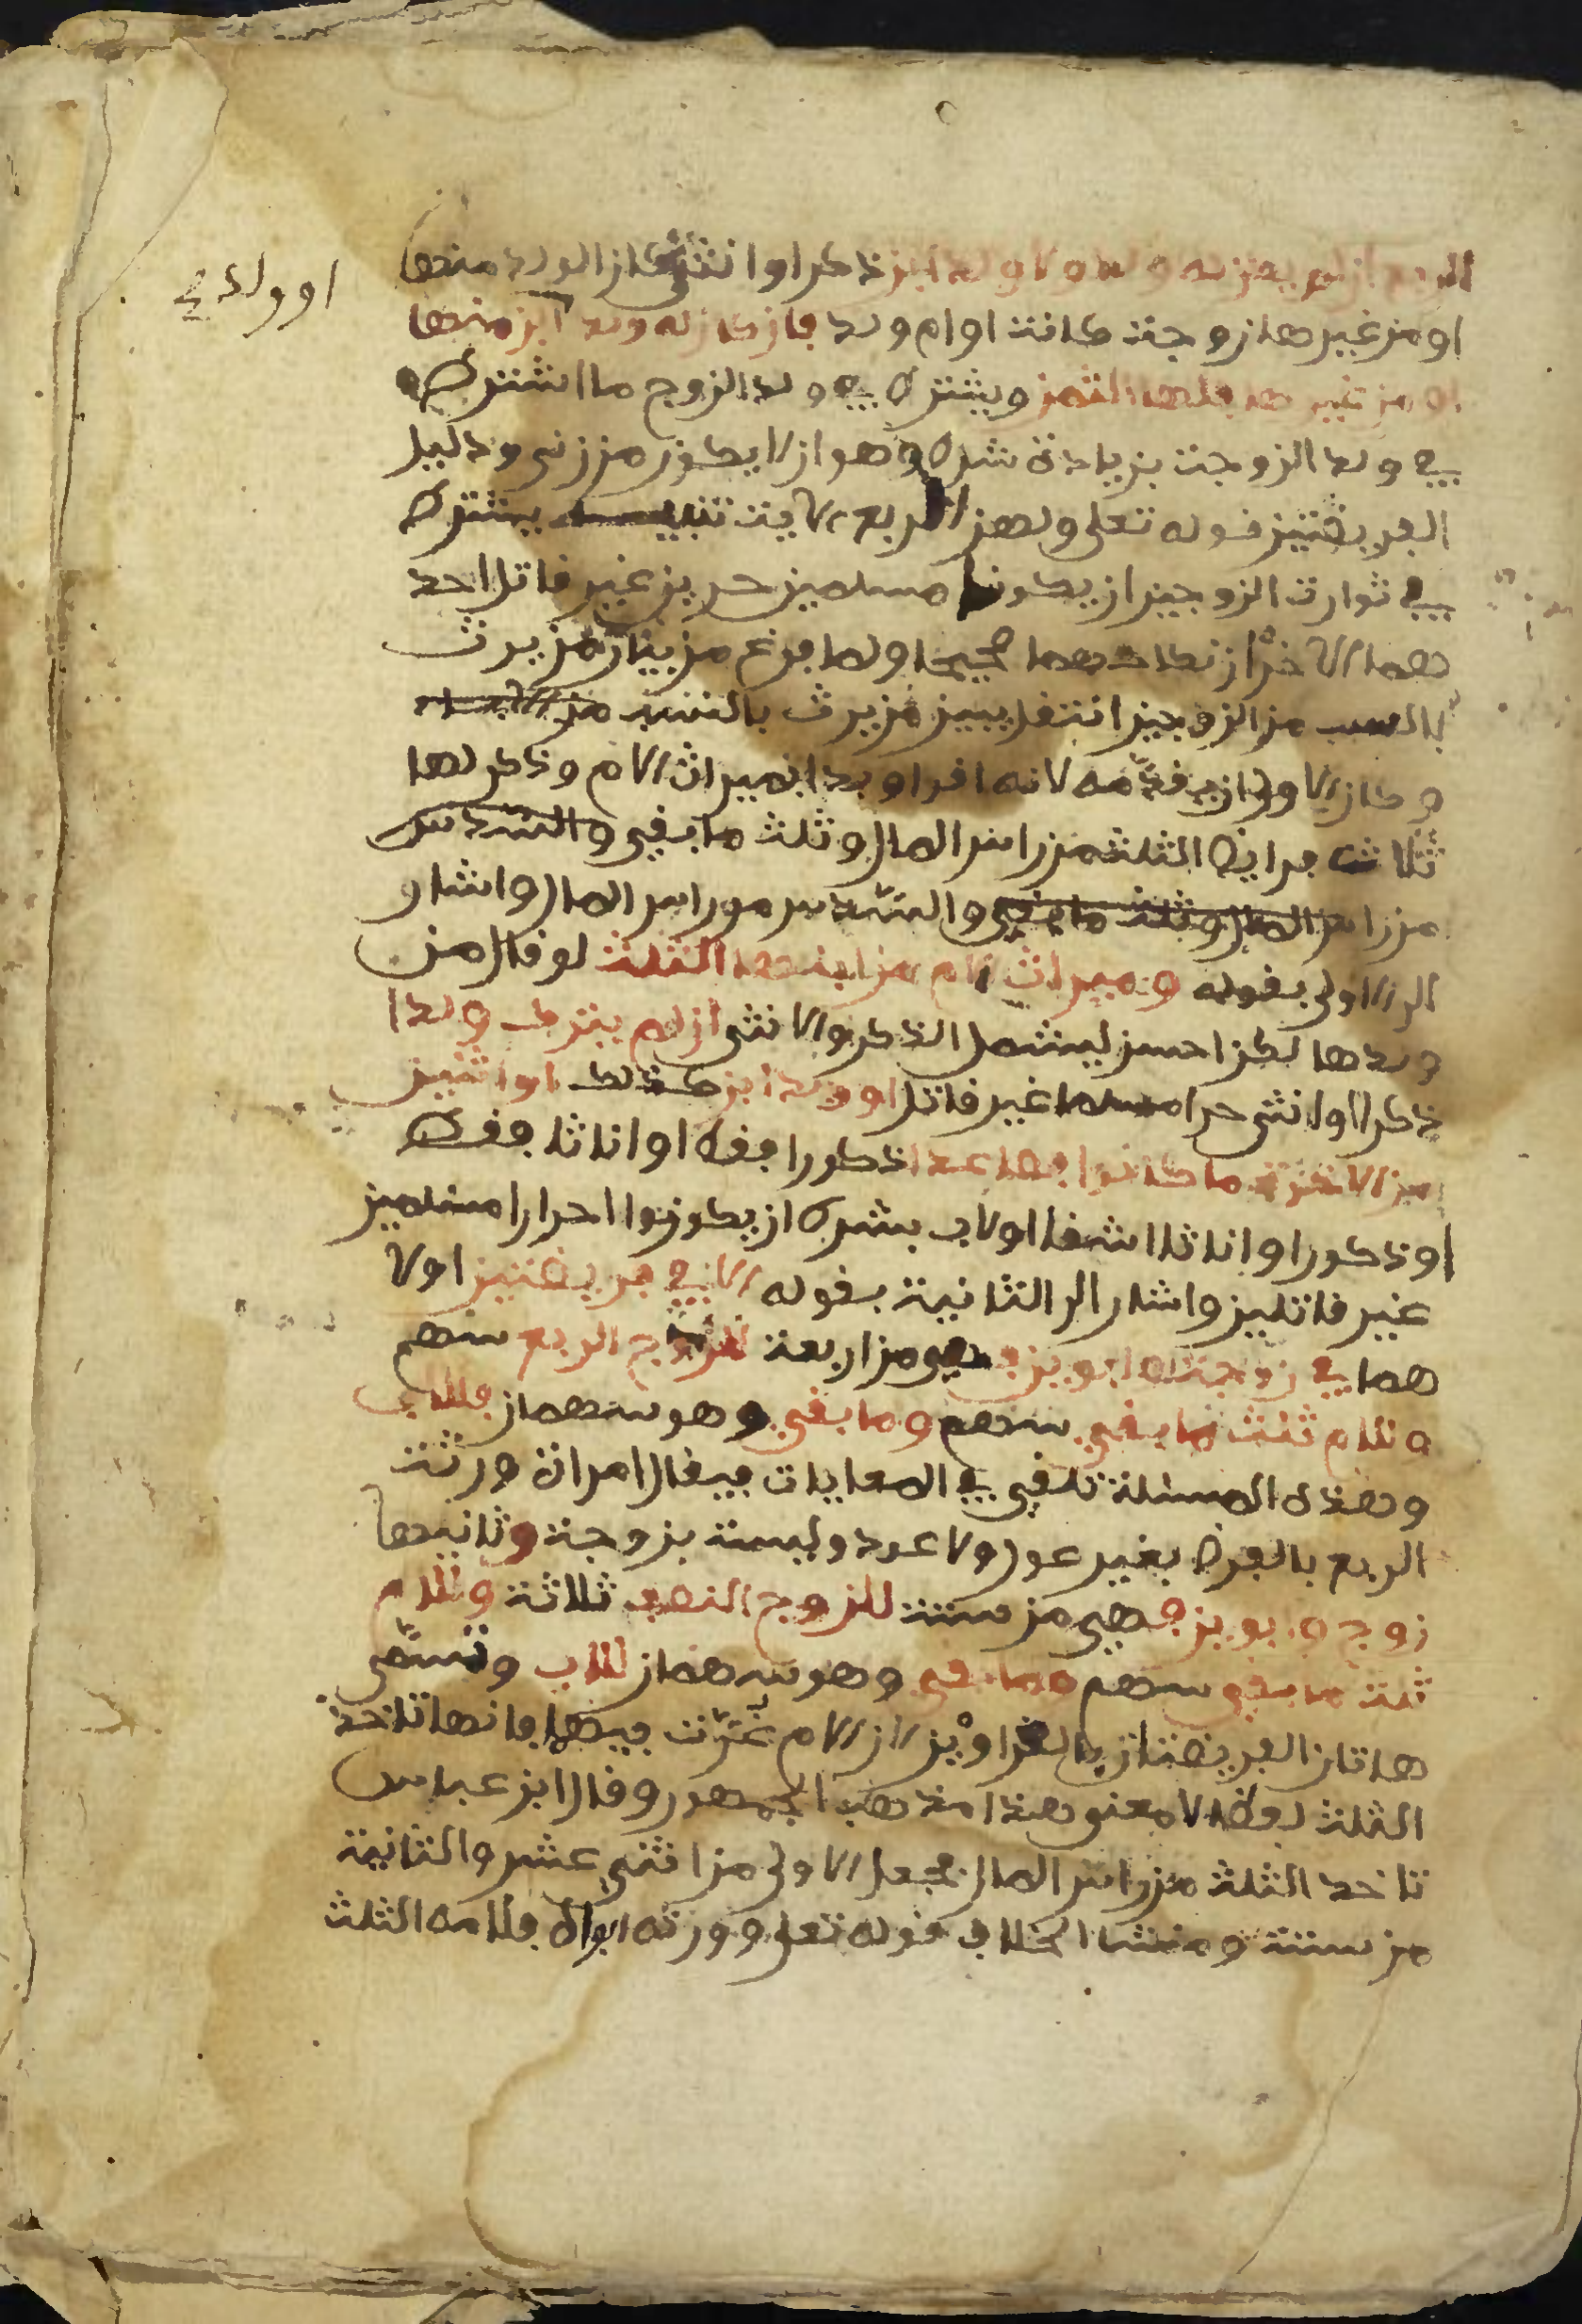 الربع ان لم يكن له ولد ولا ولد ابن ذكرا او انثى كان الولد منها
او ولد
او من غيرها زوجة كانت او ام ولد فان كان له ولد ابن منها
او من غيرها فلها الثمن ويشترط في ولد الزوج ما اشترط
في ولد الزوجة بزيادة شرط وهو ان لا يكون من زنى ودليل
الفريضتين قوله تعلى ولهن الربع الاية تنبيه يشترط
في توارث الزوجين ان يكونا مسلمين حرين غير قاتل احد
هما الاخر ان نكاحهما صحيحا ولما فرغ من بيان من يرث
بالسبب من الزوجين انتقل يبين من يرث بالنسب من
وكان الاولى ان يقدمه لانه اقوا وبدا بميراث الام وذكر لها
ثلاث فرايض الثلث من راس المال وثلث ما بقي والسدس
من راس المال وثلث ما بقي والسدس من راس المال واشار
الى الاولى بقوله وميراث الام من ابنها الثلث لو قال من
ولدها لكن احسن ليشمل الذكر والانثى ان لم يترك ولدا
ذكرا او انثى حرا مسلما غير قاتل او ولد ابن كذلك او اثنين
من الاخوة ما كانوا فصاعدا ذكورا فقط او اناثا فقط
او ذكورا واناثا اشقا او لاب بشرط ان يكونوا احرارا مسلمين
غير قاتلين واشار الى الثانية بقوله الا في فريضتين اولا
هما في زوجة وابوين فهي من اربعة للزوجة الربع سهم
وللام ثلث ما بقي سهم وما بقي وهو سهمان فللاب
وهذه المسئلة تلقى في المعايات فيقال امراة ورثت
الربع بالفرض بغير عول ولا عرد وليست بزوجة وثانيها
زوج وابوين فهي من ستة للزوج النصف ثلاثة وللام
ثلث ما بقي سهم وما بقي وهو سهمان للاب وتسمى
هاتان الفريضتان بالغراوين لان الام غرت فيها فانها تاخذ
الثلث لفظا لا معنى هذا مذهب الجمهور وقال ابن عباس
تاخذ الثلث من راس المال فجعل الاولى من اثني عشر والثانية
من ستة ومنشا الخلاف قوله تعلى وورثه ابواه فلامه الثلث